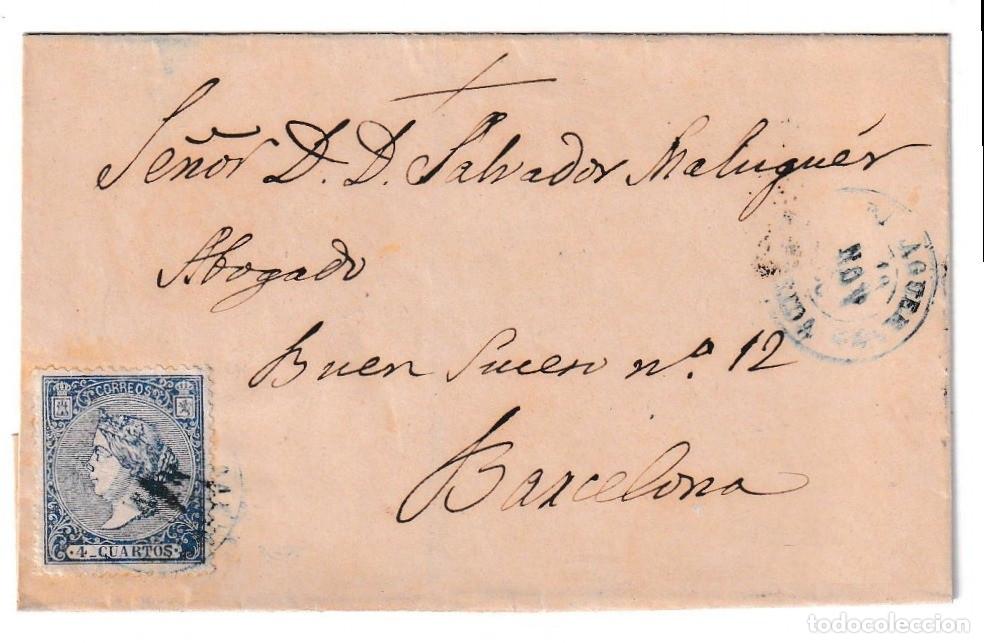 Señor D. D. Salvador Maluquér
Abogado
Buen Suceso nº. 12
Barcelona
NOV
CORREOS
4_CUARTOS
todocoleccion